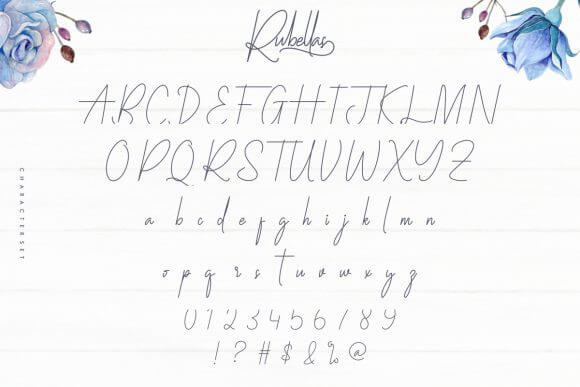 Rubellas
ABCDEFGHIJKLMN
OPQRSTUVWXYZ
a b c d e f g h i j k l m n
o p q r s t u v w x y z
0 1 2 3 4 5 6 7 8 9
! ? # $ & % @
CHARACTERSET